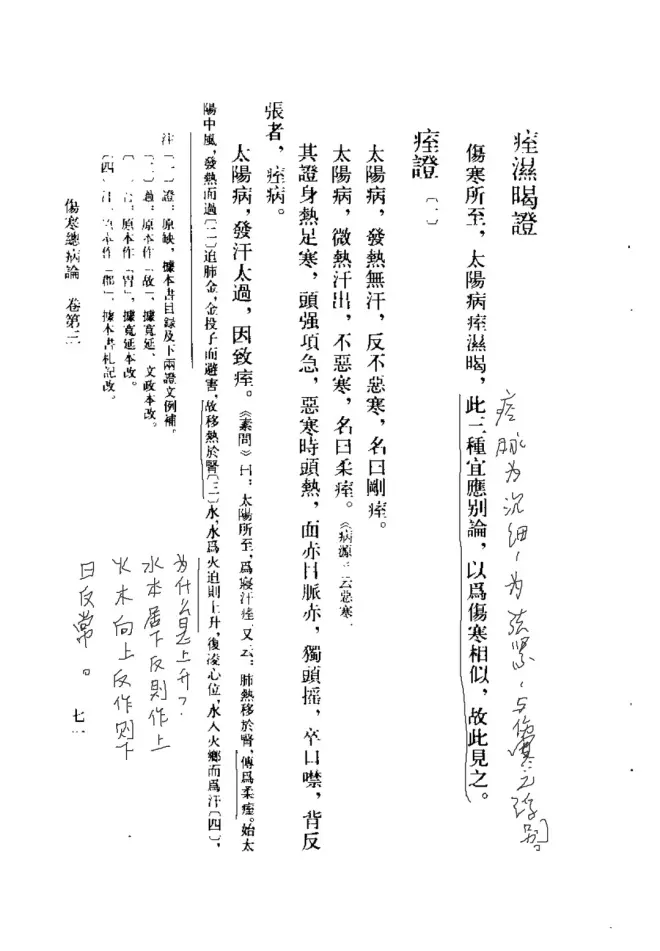 痓濕暍證
傷寒所至，太陽病痓濕暍，此三種宜應别論，以爲傷寒相似，故此見之。
痓脉为沉细，为弦紧，与伤寒之浮别。
痓證〔一〕
太陽病，發熱無汗，反不惡寒，名曰剛痓。
太陽病，微熱汗出，不惡寒，名曰柔痓。《病源》云惡寒。
其證身熱足寒，頭强項急，惡寒時頭熱，面赤目脈赤，獨頭摇，卒口噤，背反
張者，痓病。
太陽病，發汗太過，因致痓。《素問》曰：太陽所至，爲寢汗痓。又云：肺熱移於腎，傳爲柔痓。始太
陽中風，發熱而過〔二〕迫肺金，金投子而避害，故移熱於腎〔三〕水，水爲火迫則上升，復凌心位，水入火鄉而爲汗〔四〕，
为什么是上升？
水本居下反則作上
火木向上反作则下
曰反常。
注〔一〕證：原缺，據本書目録及下兩證文例補。
〔二〕過：原本作「故」，據寬延、文政本改。
原本作「胃」，據寬延本改。
〔四〕本作「鄰」，據本書札記改。
傷寒總病論 卷第三
七一